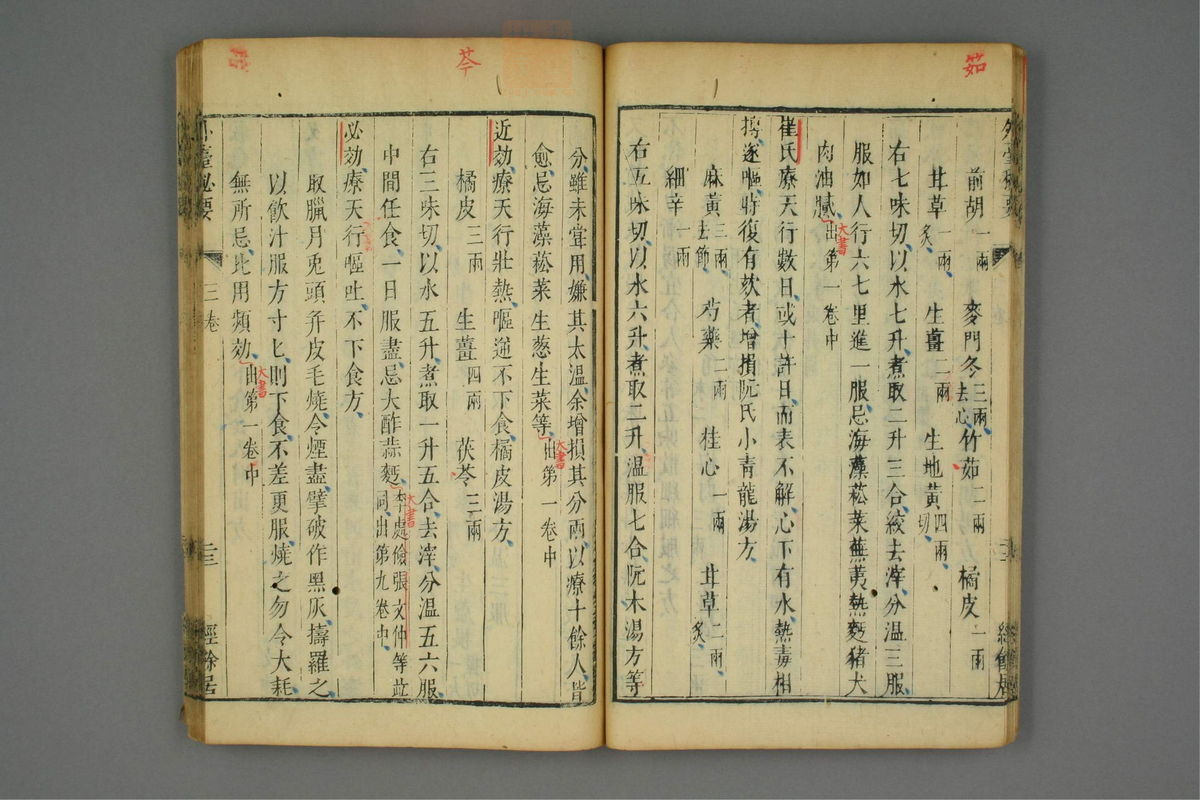 茹
前胡一兩 麥門冬三兩去心 竹茹二兩 橘皮一兩
甘草一兩炙 生薑二兩 生地黃四兩切
右七味切以水七升煮取二升三合絞去滓分溫三服
服如人行六七里進一服忌海藻菘菜蕪荑熱麪猪犬
肉油膩出第一卷中
大書
崔氏療天行數日或十許日而表不解心下有水熱毒相
搏遂嘔時復有欬者增損阮氏小青龍湯方
麻黃三兩去節 芍藥二兩 桂心一兩 甘草二兩炙
細辛一兩
右五味切以水六升煮取二升溫服七合阮木湯方等
芩
分雖未嘗用嫌其太溫余增損其分兩以療十餘人皆
愈忌海藻菘菜生葱生菜等出第一卷中
大書
近効療天行壯熱嘔逆不下食橘皮湯方
橘皮三兩 生薑四兩 茯苓三兩
右三味切以水五升煮取一升五合去滓分溫五六服
中間任食一日服盡忌大酢蒜麪李處儉張文仲等竝同出第九卷中
大書
必効療天行嘔吐不下食方
取臘月兎頭并皮毛燒令煙盡擘破作黑灰擣羅之
以飲汁服方寸匕則下食不差更服燒之勿令大耗
無所忌比用頻効出第一卷中
大書
三卷
二三
經餘居